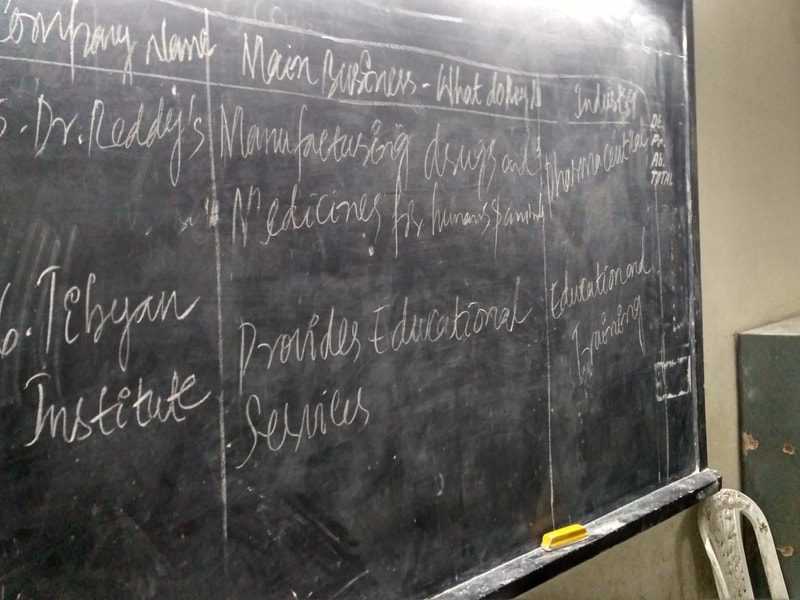 Company Name
Main Business - What do they do
Industry
5. Dr. Reddy's
Manufacturing drugs and
Medicines for humans & animal
Pharmaceutical
Pr.
Ab.
TOTAL
6. TEbyan
Institute
Provides Educational
Services
Education and
Training